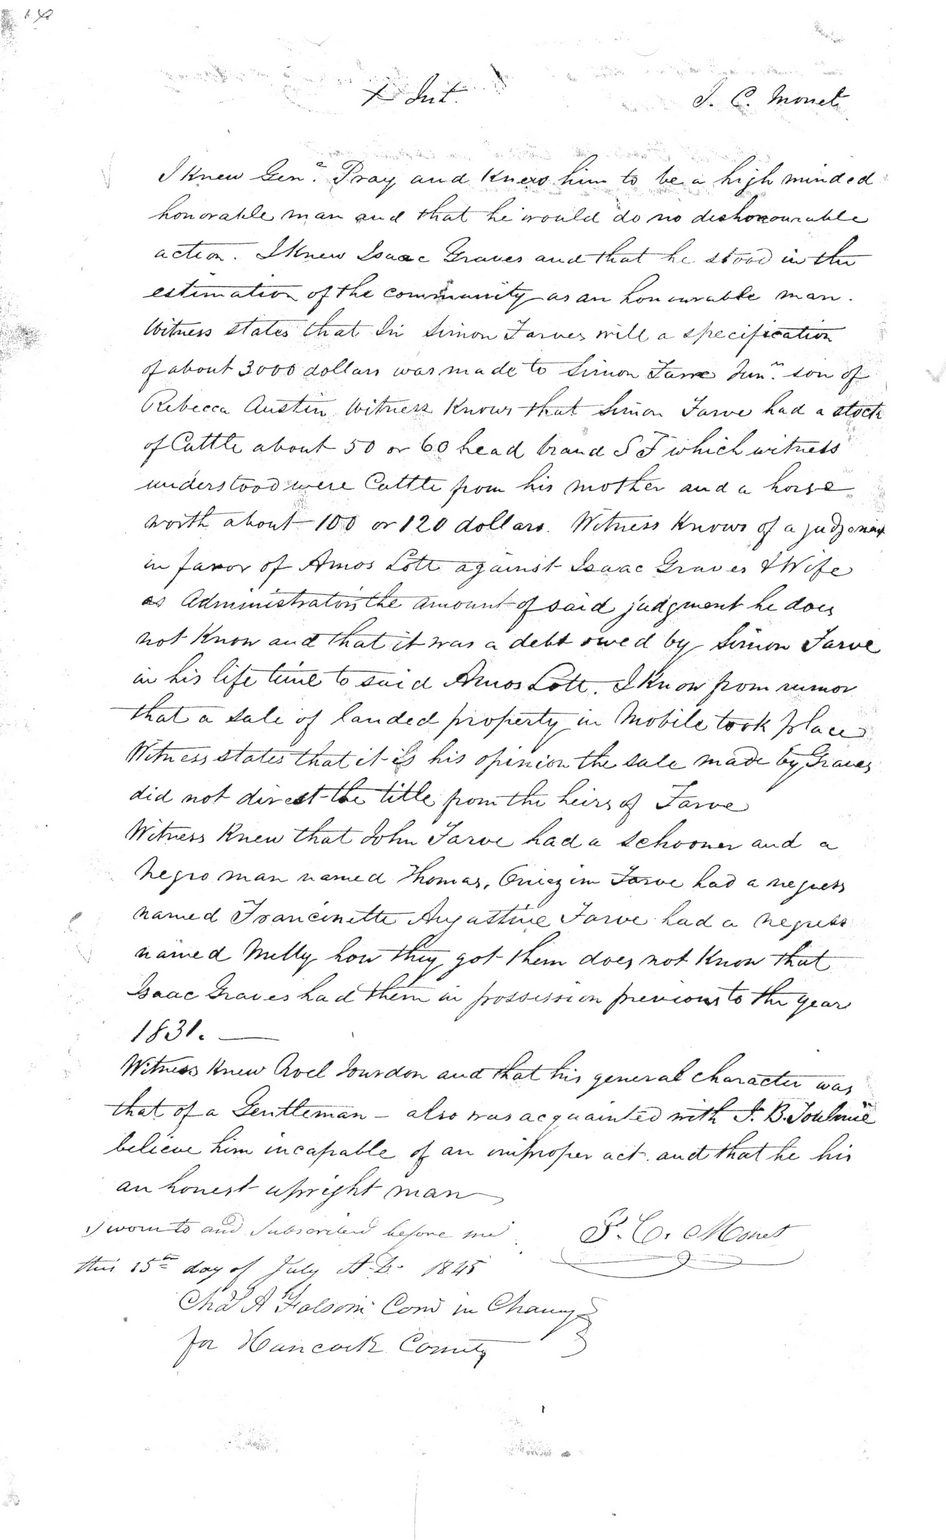 X Int. J. C. Monet
I Knew Genl. Pray and Knew him to be a high minded
honorable man and that he would do no dishonourable
action. I Knew Isaac Graves and that he stood in the
estimation of the community as an honourable man.
Witness states that In Simon Farves will a specification
of about 3000 dollars was made to Simon Farve Junr. son of
Rebecca Austin Witness Knows that Simon Farve had a stock
of Cattle about 50 or 60 head brand S F which witness
understood were Cattle from his mother and a horse
worth about 100 or 120 dollars. Witness Knows of a judgment
in favor of Amos Lott against Isaac Graves & Wife
as Administrators the amount of said judgment he does
not Know and that it was a debt owed by Simon Farve
in his life time to said Amos Lott. I Know from rumor
that a sale of landed property in Mobile took place
Witness states that it is his opinion the sale made by Graves
did not divest the title from the heirs of Farve
Witness Knew that John Farve had a schooner and a
Negro man named Thomas, Farve had a negress
named Francinette Augustine Farve had a negress
named Milly how they got them does not Know that
Isaac Graves had them in possession previous to the year
1831. —
Witness Knew Noel Jourdon and that his general character was
that of a Gentleman – also was acquainted with J. B. Toulmie
believe him incapable of an improper act. and that he his
an honest upright man
Sworn to and Subscribed before me
this 15th day of July A.D. 1845
J. C. Monet
Chas A Folsom Comr in Chancy
for Hancock County